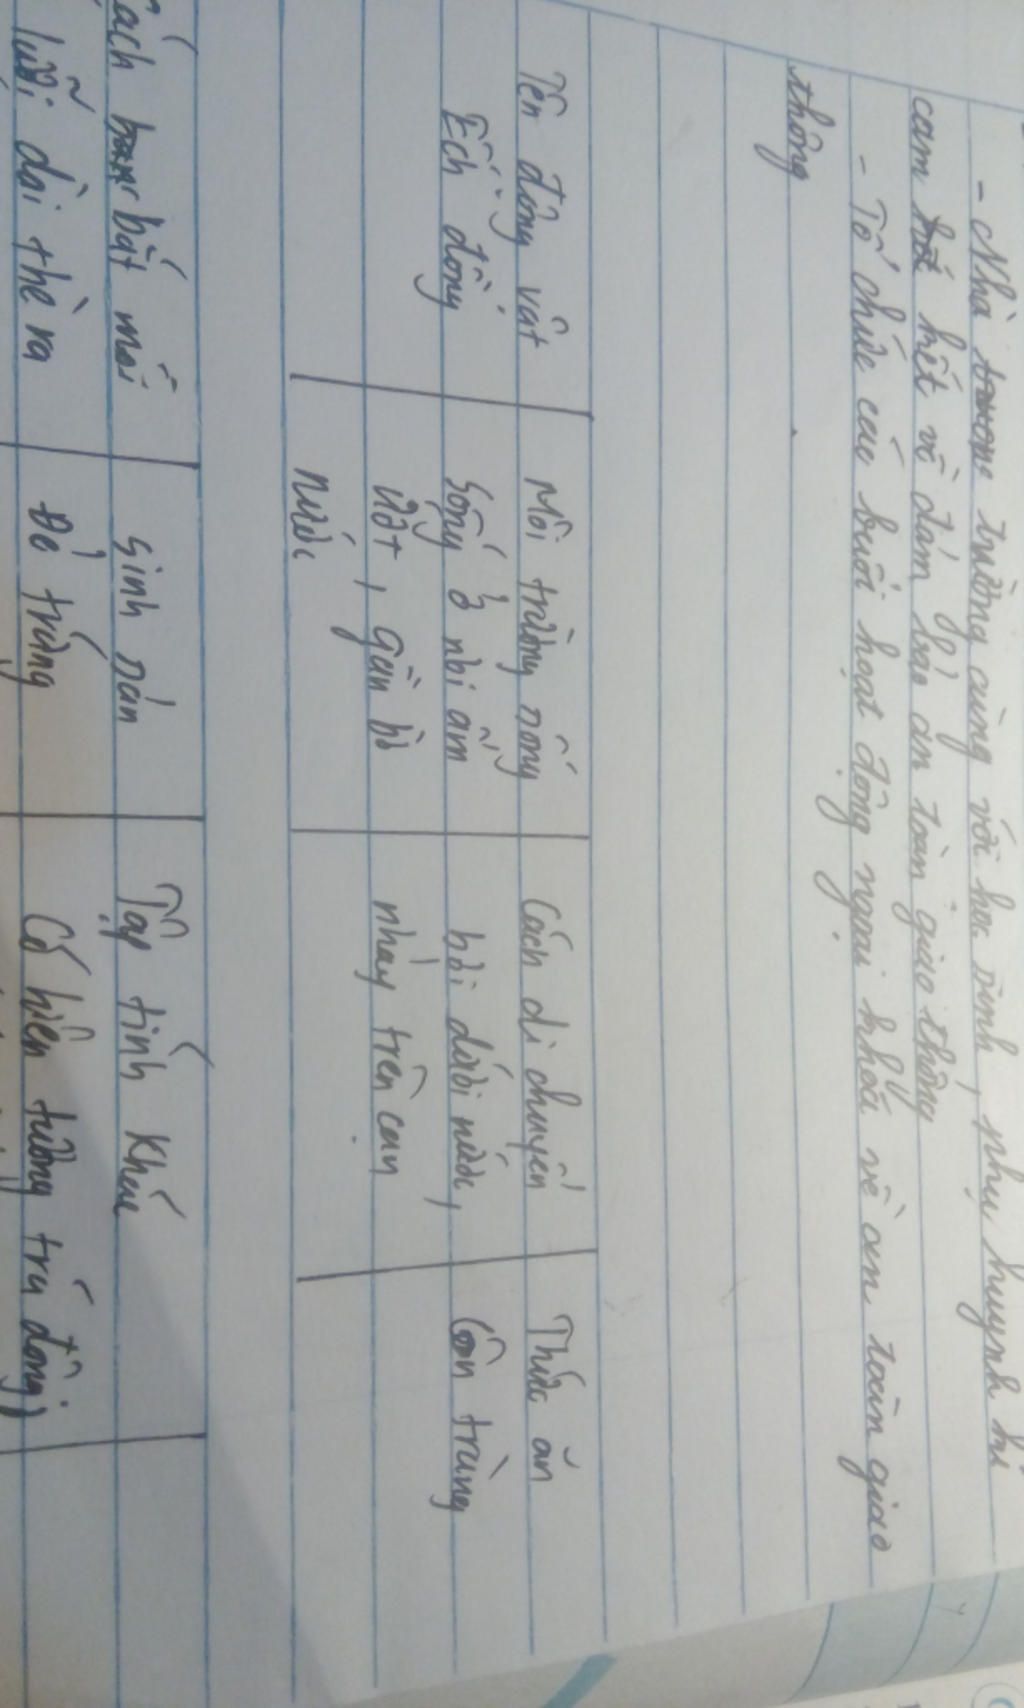 - Nhà trường cùng với học sinh, phụ huynh kí
cam kết về đảm bảo an toàn giao thông
- Tổ chức các buổi hoạt động ngoại khoá về an toàn giao
thông
Tên động vật | Môi trường sống | Cách di chuyển | Thức ăn
Ếch đồng | Sống ở nơi ẩm | bơi dưới nước, | Côn trùng
ướt, gần bờ | nhảy trên cạn
nước
Cách bắt mồi | Sinh sản | Tập tính khác
lưỡi dài thè ra | Đẻ trứng | Có hiện tượng trú đông